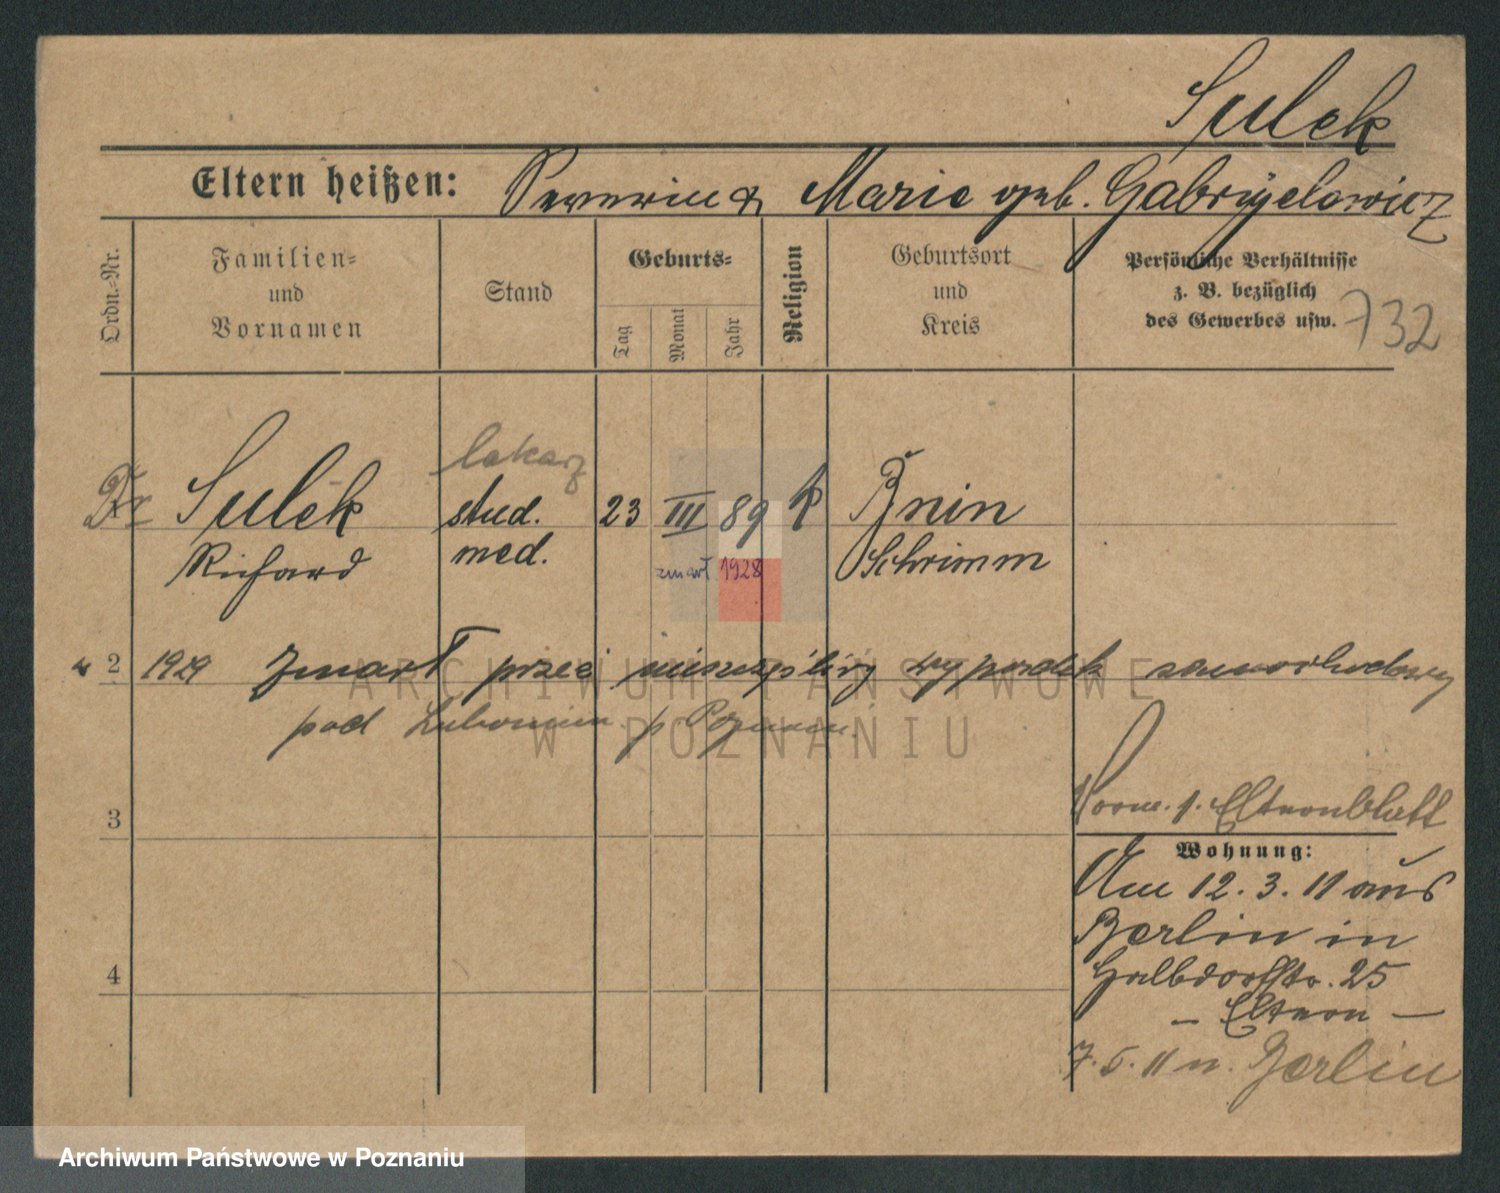 Sulek
Eltern heißen: Severin & Marie geb. Gabryelowicz
Ordn.-Nr.
Familien-
und
Vornamen
Stand
Geburts-
Tag
Monat
Jahr
Religion
Geburtsort
und
Kreis
Persönliche Verhältnisse
z. B. bezüglich
des Gewerbes usw.
732
lekarz
Dr Sulek stud. 23 III 89 k Bnin
Richard med. Schrimm
zmarł 1928
2 1929 Zmarł przez nieszczęśliwy wypadek samochodowy
pod Luboniem p Poznań
ARCHIWUM PAŃSTWOWE
W POZNANIU
3
Elternblatt
Wohnung:
Am 12.3.11 aus
Berlin in
25
– Eltern –
4
7.5.11 n. Berlin
Archiwum Państwowe w Poznaniu